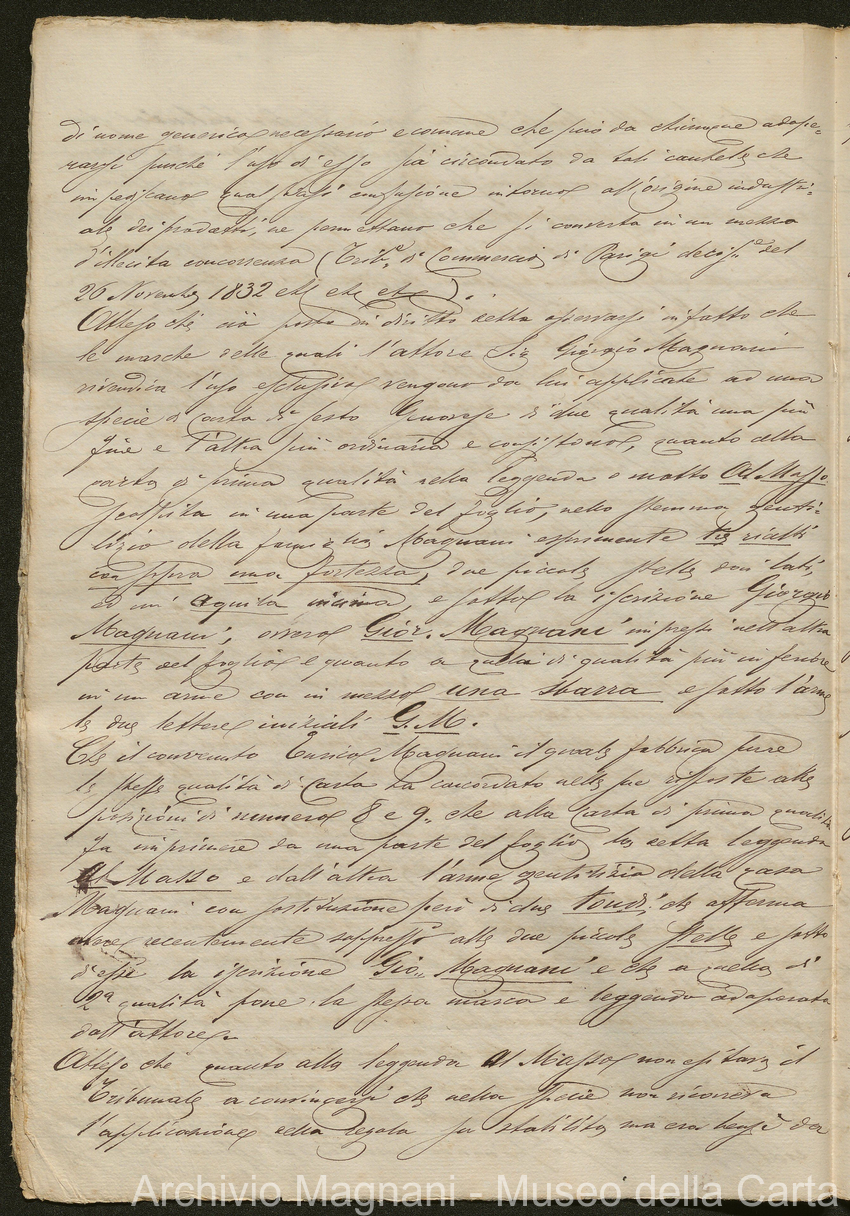 di nome generico necessario e comune che può da chiunque adope=
rarsi purché l'uso di esso sia circondato da tali cautele che
impediscano qualsiasi confusione intorno all'origine industri=
ale dei prodotti, ne permettano che si converta in un mezzo
d'illecita concorrenza (Trib.e di Commercio di Parigi decis.ne del
26 Novembre 1832 etc etc etc).
Atteso che ciò posto in diritto debba osservarsi in fatto che
le marche delle quali l'attore Sig Giorgio Magnani
rivendica l'uso esclusivo vengono da lui applicate ad una
specie di carta di sesto Genovese di due qualità una più
fine e l'altra più ordinaria e consistono, quanto alla
carta di prima qualità nella leggenda o motto Al Masso
scolpita in una parte del foglio, nello stemma genti=
lizio della famiglia Magnani esprimente tre rialti
con sopra una fortezza, due piccole stelle dai lati,
ed un' aquila in cima, e sotto la iscrizione Giorgio
Magnani, ovvero Gior. Magnani impressi nell'altra
parte del foglio e quanto a quella di qualità più inferiore
in un arme con in mezzo una sbarra e sotto l'arme
le due lettere iniziali G.M.
Che il convenuto Enrico Magnani il quale fabbrica pure
le stesse qualità di Carta ha concordato nelle sue risposte alle
posizioni di numero 8 e 9. che alla Carta di prima qualità
fa imprimere da una parte del foglio la detta leggenda
Al Masso e dall'altra l'arme gentilizia della casa
Magnani con sostituzione però di due tondi che afferma
aver recentemente soppresso alle due piccole stelle e sotto
d'esse la iscrizione Gio,, Magnani e che a quella di
2a qualità pone la stessa marca e leggenda adoperata
dall'attore.
Atteso che quanto alla leggenda Al Masso non esitava il
Tribunale a convincersi che nella specie non ricorreva
l'applicazione della Regola su stabilita ma era bensì da
Archivio Magnani - Museo della Carta